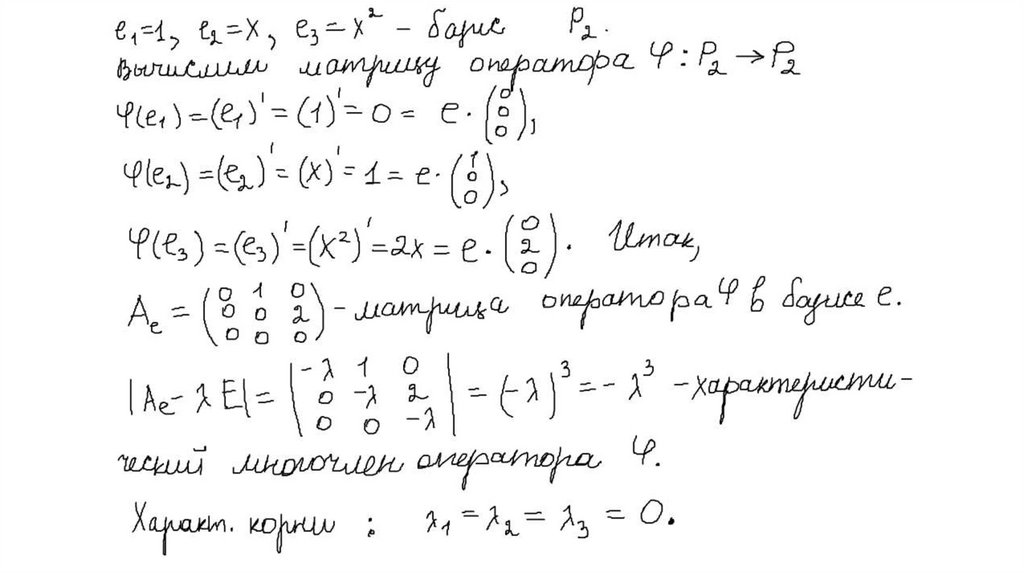 e₁=1, e₂=x, e₃=x² – базис P₂.
Вычислим матрицу оператора φ: P₂ → P₂
φ(e₁) = (e₁)' = (1)' = 0 = e · (0 0 0),
φ(e₂) = (e₂)' = (x)' = 1 = e · (1 0 0),
φ(e₃) = (e₃)' = (x²)' = 2x = e · (0 2 0). Итак,
Aₑ = (0 1 0; 0 0 2; 0 0 0) – матрица оператора φ в базисе e.
|Aₑ – λE| = |-λ 1 0; 0 -λ 2; 0 0 -λ| = (-λ)³ = -λ³ – характеристи-
ческий многочлен оператора φ.
Характ. корни : λ₁ = λ₂ = λ₃ = 0.